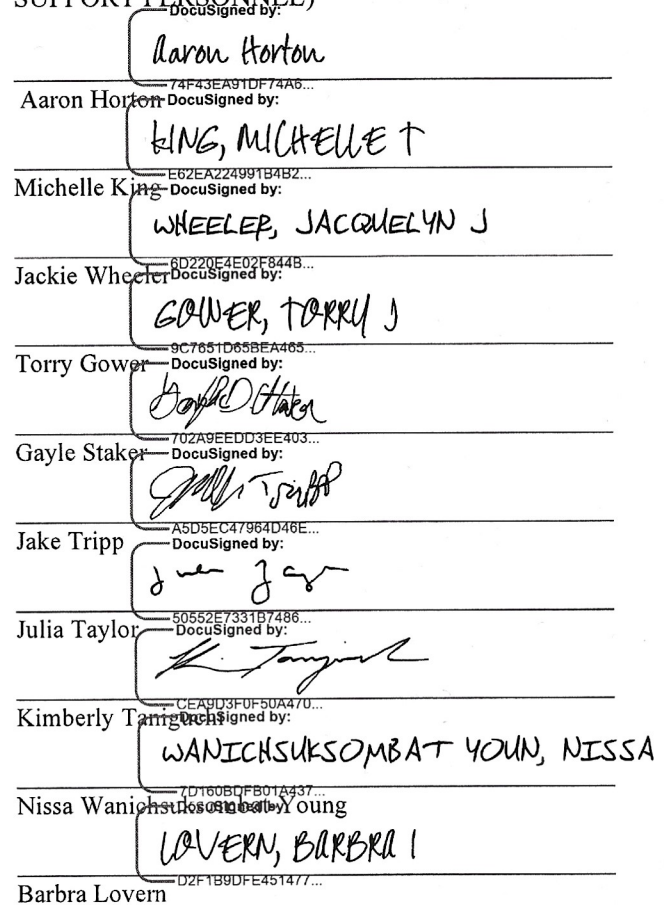 SUPPORT PERSONNEL)
DocuSigned by:
Aaron Horton
74F43EA91DF74A6...
Aaron Horton
DocuSigned by:
KING, MICHELLE T
E62EA224991B4B2...
Michelle King
DocuSigned by:
WHEELER, JACQUELYN J
6D220E4E02F844B...
Jackie Wheeler
DocuSigned by:
GOWER, TORRY J
9C7651D65BEA465...
Torry Gower
DocuSigned by:
Gayle D Staker
702A9EEDD3EE403...
Gayle Staker
DocuSigned by:
Tripp
A5D5EC47964D46E...
Jake Tripp
DocuSigned by:
50552E7331B7486...
Julia Taylor
DocuSigned by:
CEA9D3F0F50A470...
Kimberly Taniguchi
DocuSigned by:
WANICHSUKSOMBAT YOUN, NISSA
7D160BDFB01A437...
Nissa Wanichsuksombat-Young
DocuSigned by:
LOVERN, BARBRA I
D2F1B9DFE451477...
Barbra Lovern